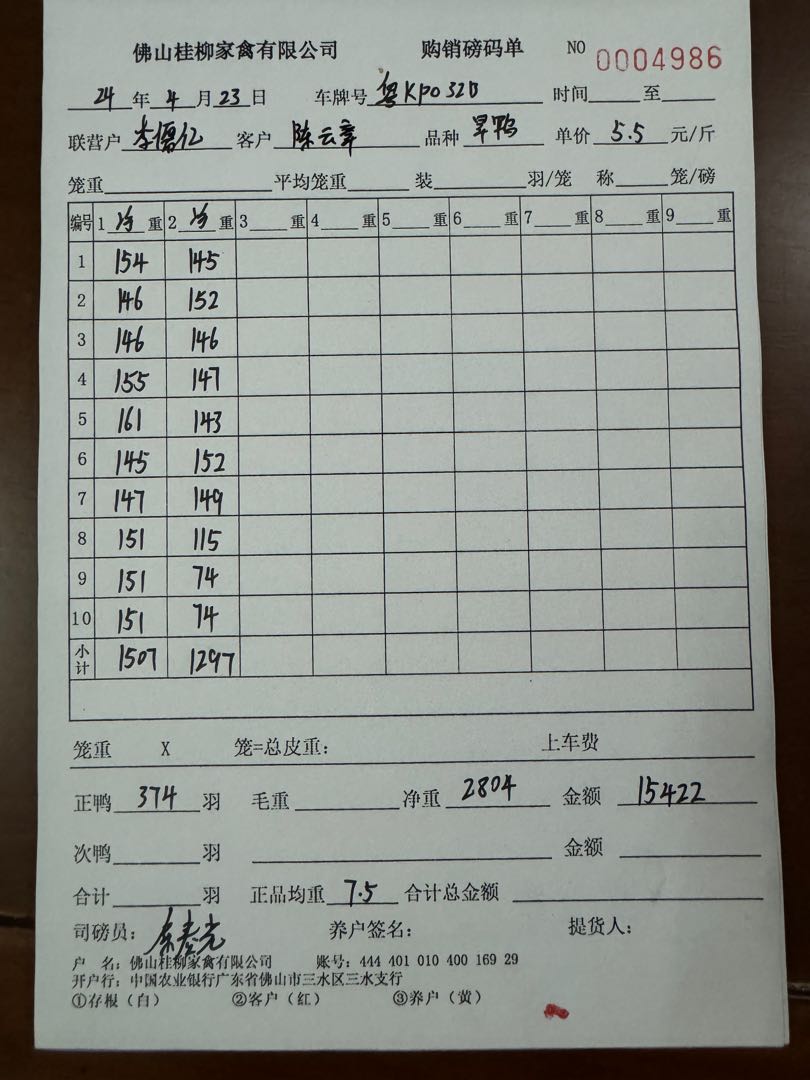 佛山桂柳家禽有限公司 购销磅码单 NO 0004986
24 年 4 月 23 日 车牌号 粤KP0320 时间 至
联营户 李儒亿 客户 陈云章 品种 旱鸭 单价 5.5 元/斤
笼重 平均笼重 装 羽/笼 称 笼/磅
编号 1 净 重 2 净 重 3 重 4 重 5 重 6 重 7 重 8 重 9 重
1 154 145
2 146 152
3 146 146
4 155 147
5 161 143
6 145 152
7 147 149
8 151 115
9 151 74
10 151 74
小计 1507 1297
笼重 X 笼=总皮重: 上车费
正鸭 374 羽 毛重 净重 2804 金额 15422
次鸭 羽 金额
合计 羽 正品均重 7.5 合计总金额
司磅员: 养户签名: 提货人:
户 名: 佛山桂柳家禽有限公司 账号: 444 401 010 400 169 29
开户行: 中国农业银行广东省佛山市三水区三水支行
①存根(白) ②客户(红) ③养户(黄)